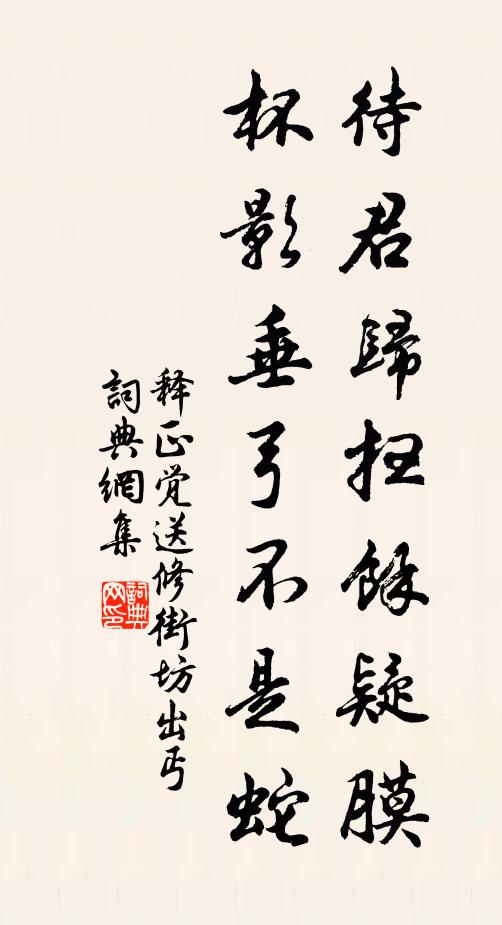 待君歸扫餘疑膜
杯影垂弓不是蛇
释正觉送修街坊出丐
詞典網集
詞典
网印